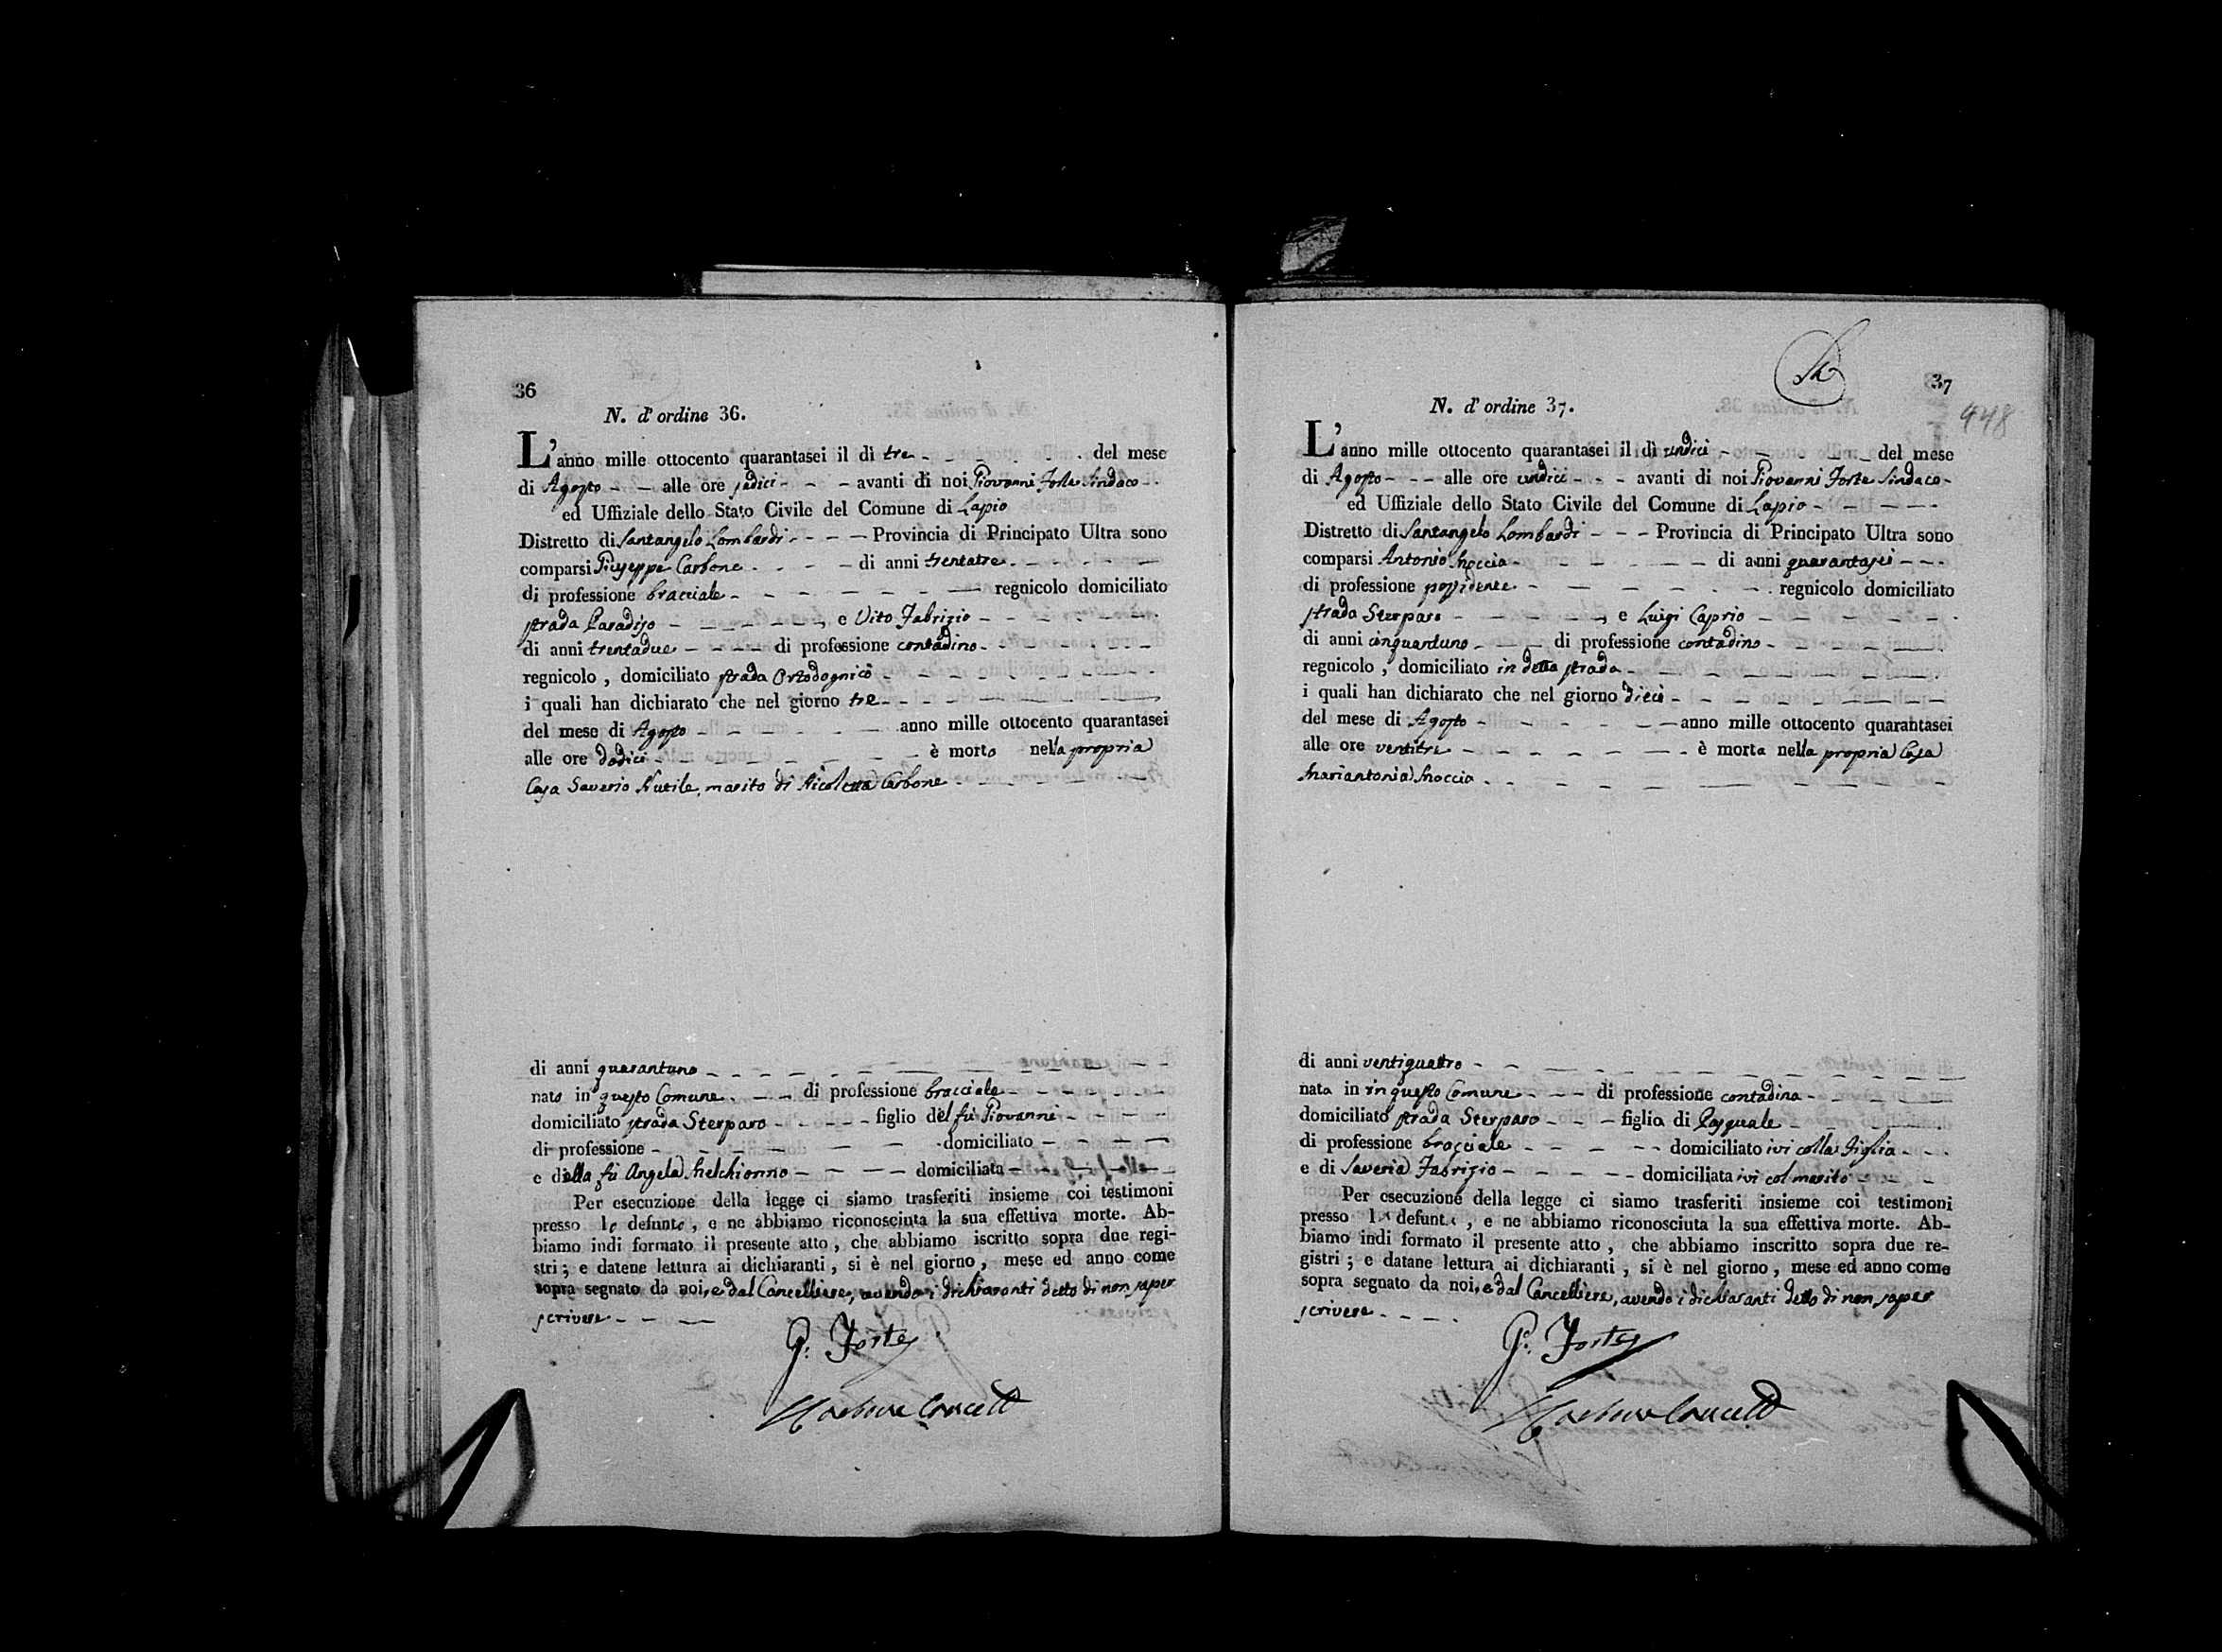 36
N. d'ordine 36.
L'anno mille ottocento quarantasei il dì tre del mese
di Agosto alle ore sedici avanti di noi Giovanni Forte Sindaco
ed Uffiziale dello Stato Civile del Comune di Lapio
Distretto di Santangelo Lombardi Provincia di Principato Ultra sono
comparsi Giuseppe Carbone di anni trentatre
di professione bracciale regnicolo domiciliato
strada Paradiso e Vito Fabrizio
di anni trentadue di professione contadino
regnicolo, domiciliato strada Ortodognico
i quali han dichiarato che nel giorno tre
del mese di Agosto anno mille ottocento quarantasei
alle ore dodici è morto nella propria
Casa Saverio Nutile, marito di Nicoletta Carbone
di anni quarantuno
nato in questo Comune di professione bracciale
domiciliato strada Sterparo figlio del fù Giovanni
di professione domiciliato
e della fù Angela Melchionno domiciliata
Per esecuzione della legge ci siamo trasferiti insieme coi testimoni
presso lo defunto, e ne abbiamo riconosciuta la sua effettiva morte. Ab-
biamo indi formato il presente atto, che abbiamo iscritto sopra due regi-
stri; e datene lettura ai dichiaranti, si è nel giorno, mese ed anno come
sopra segnato da noi, e dal Cancelliere, avendo i dichiaranti detto di non saper
scrivere
G. Forte
37
448
N. d'ordine 37.
L'anno mille ottocento quarantasei il dì undici del mese
di Agosto alle ore undici avanti di noi Giovanni Forte Sindaco
ed Uffiziale dello Stato Civile del Comune di Lapio
Distretto di Santangelo Lombardi Provincia di Principato Ultra sono
comparsi Antonio Moccia di anni quarantasei
di professione possidente regnicolo domiciliato
strada Sterparo e Luigi Caprio
di anni cinquantuno di professione contadino
regnicolo, domiciliato in detta strada
i quali han dichiarato che nel giorno dieci
del mese di Agosto anno mille ottocento quarantasei
alle ore ventitre è morta nella propria Casa
Mariantonia Moccia
di anni ventiquattro
nata in in questo Comune di professione contadina
domiciliato strada Sterparo figlia di Pasquale
di professione bracciale domiciliato ivi colla figlia
e di Saveria Fabrizio domiciliata ivi col marito
Per esecuzione della legge ci siamo trasferiti insieme coi testimoni
presso la defunta, e ne abbiamo riconosciuta la sua effettiva morte. Ab-
biamo indi formato il presente atto, che abbiamo inscritto sopra due re-
gistri; e datane lettura ai dichiaranti, si è nel giorno, mese ed anno come
sopra segnato da noi, e dal Cancelliere, avendo i dichiaranti detto di non saper
scrivere
G. Forte